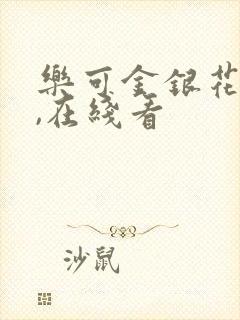 樂可金銀花
,在綫看
沙鼠